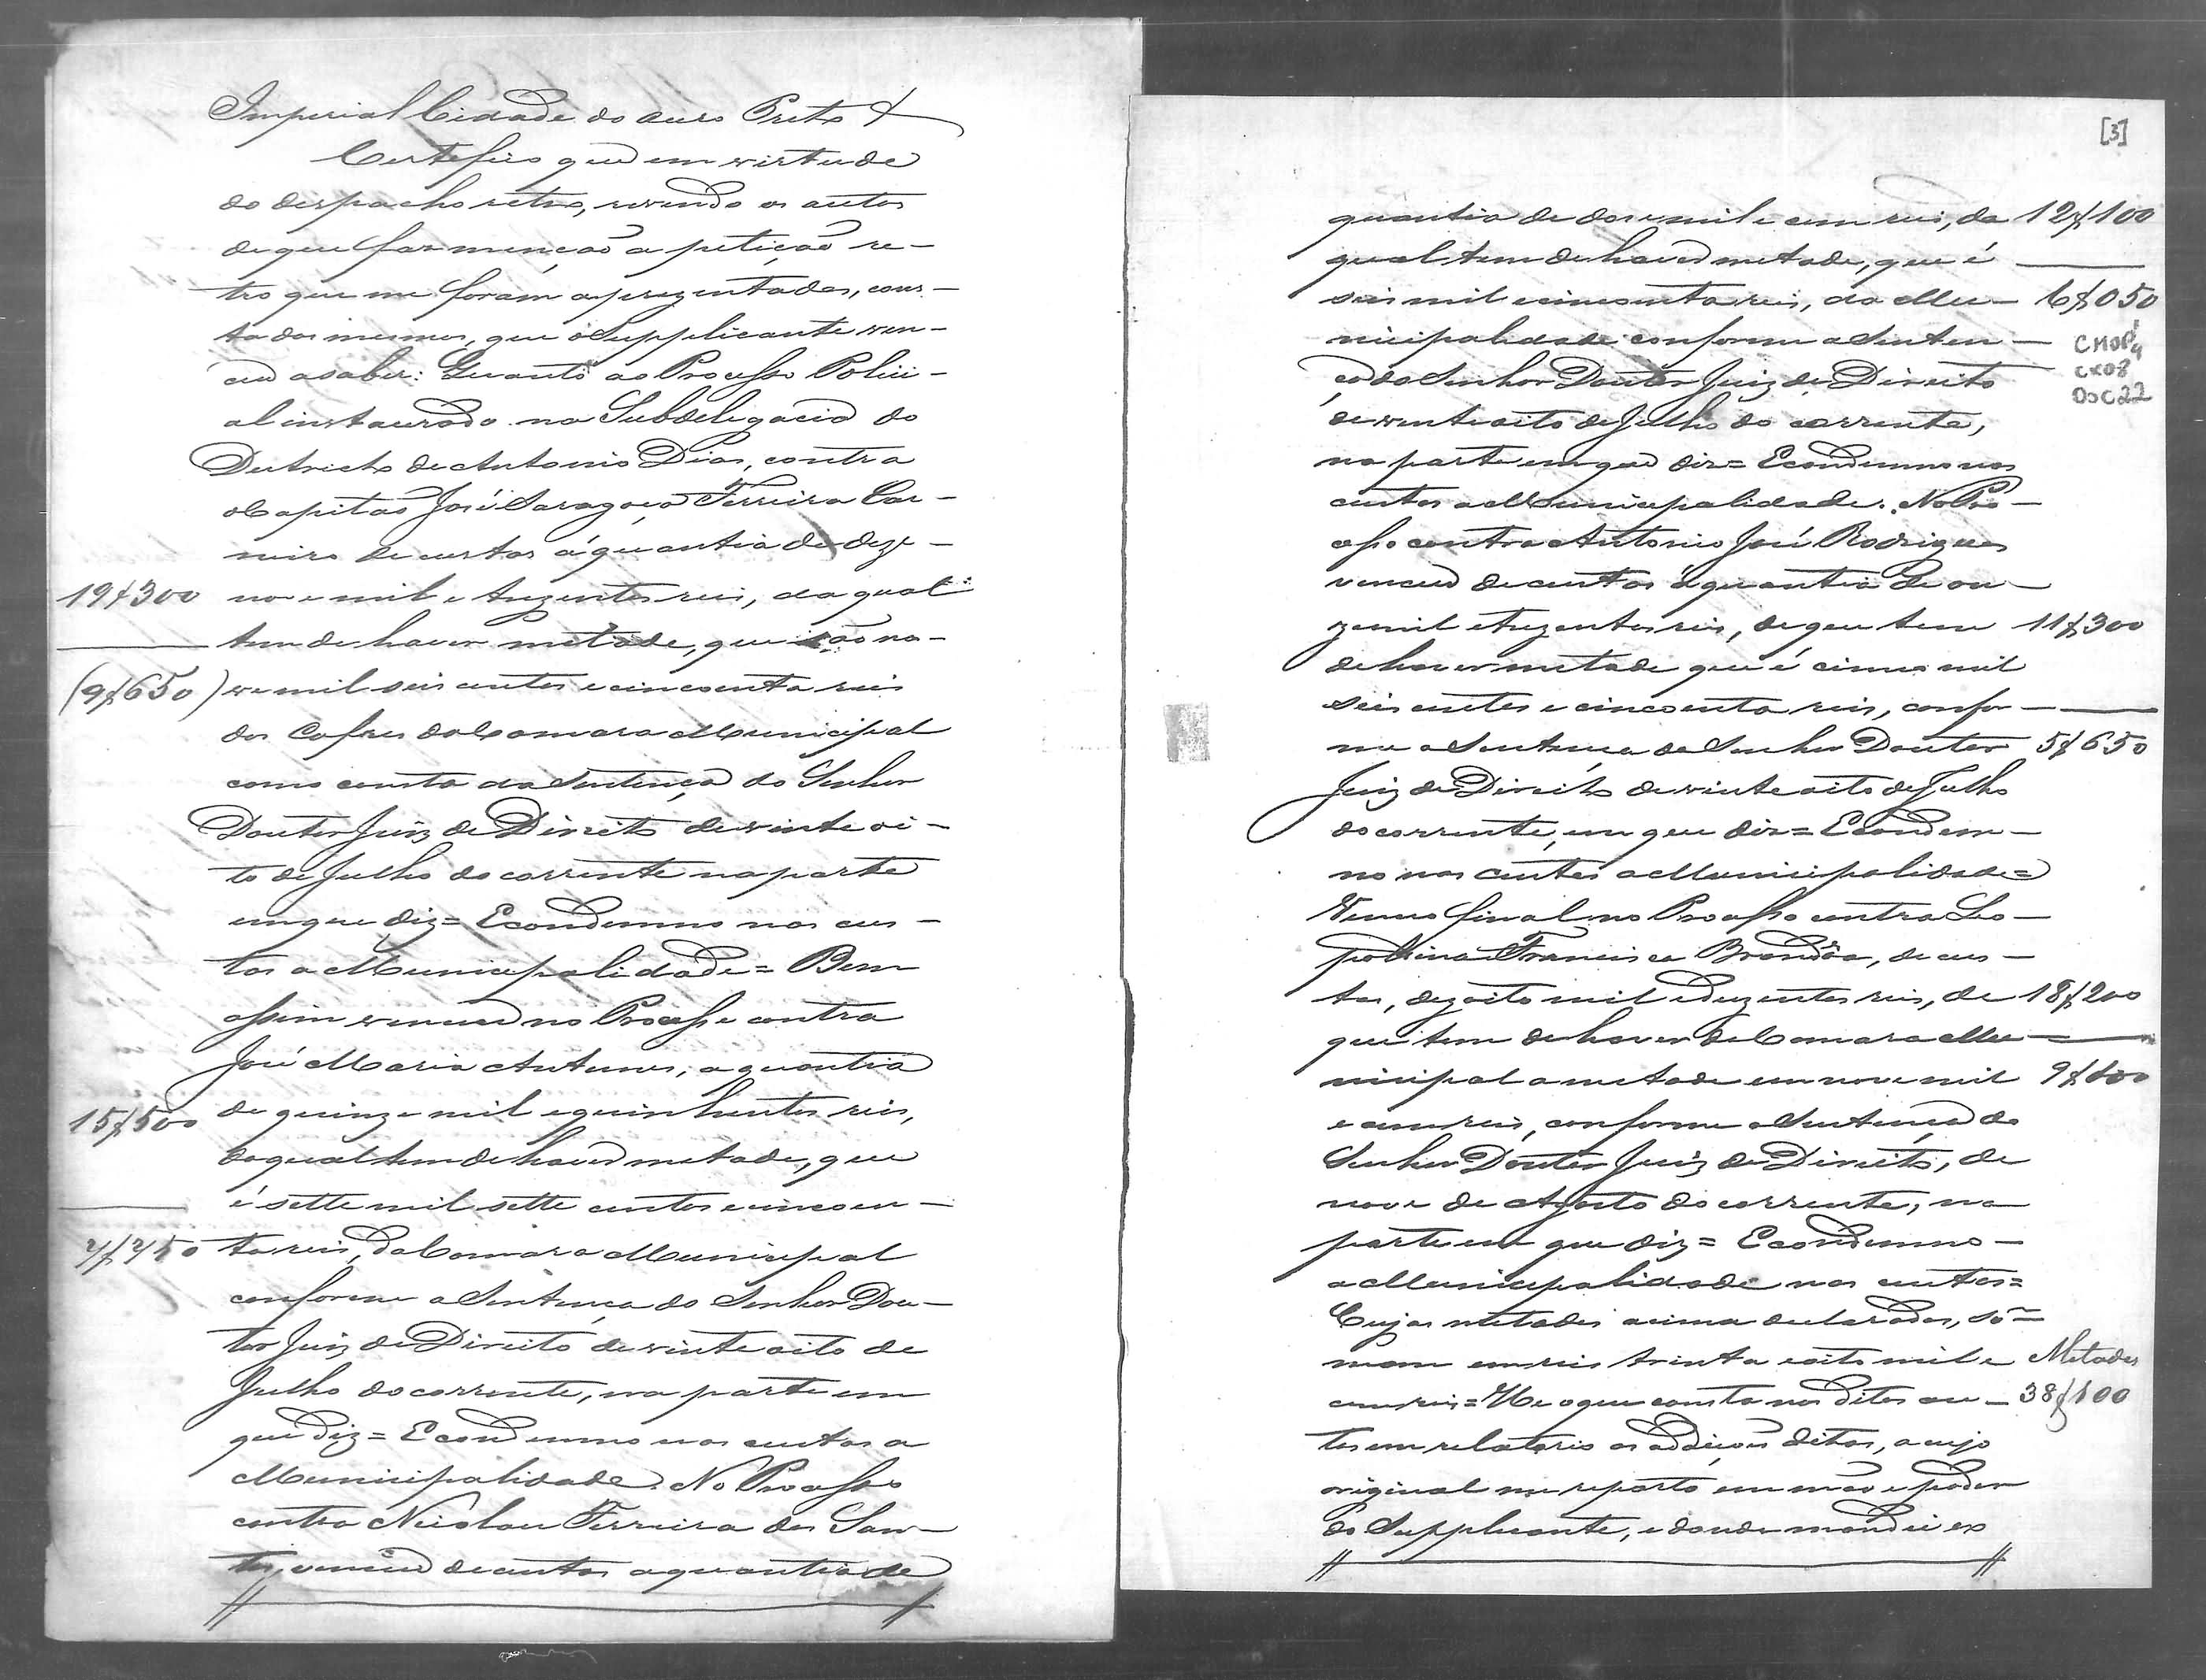 Imperial Cidade do Ouro Preto &
Certefico que em virtude
do despacho retro, revendo os autos
de que faz menção a petição re-
tro que me foram aprezentados, cons-
ta dos mesmos, que o Supplicante ven-
ceu a saber: Quanto ao Processo Polici-
al instaurado na Subdelegacia do
Destricto de Antonio Dias, contra
o Capitaõ José Saragoça Ferreira Car-
neiro de custas a quantia de deze-
19$300 nove mil e trezentos reis, da qual
tem de haver metade, que são no-
(9$650) ve mil seis centos e cincoenta reis
dos Cofres da Camara Municipal
como consta da Sentença do Senhor
Doutor Juiz de Direito de vinte oi-
to de Julho do corrente na parte
em que diz = E condemno nas cus-
tas a Municipalidade = Bem
assim venceu no Processo contra
José Maria Antunes, a quantia
15$500 de quinze mil e quinhentos reis,
da qual tem de haver metade, que
é sette mil sette centos e cincoen-
7$750 ta reis, da Camara Municipal
conforme a Sentença do Senhor Dou-
tor Juiz de Direito de vinte oito de
Julho do corrente, na parte em
que diz = E condemno nas custas a
Municipalidade. No Processo
contra Nicolau Ferreira dos San-
tos, venceu de custas a quantia de
[3]
quantia de doze mil e cem reis, da 12$100
qual tem de haver metade, que é
seis mil e cincoenta reis, da Mu- 6$050
nicipalidade conforme a Senten-
CMOP
CX08
DOC22
ça do Senhor Doutor Juiz de Direito
de vinte oito de Julho do corrente,
na parte em que diz = E condemno nas
custas a Municipalidade. No Pro-
cesso contra Antonio José Rodrigues
venceu de custas a quantia de on-
ze mil e trezentos reis, de que tem 11$300
de haver metade que é cinco mil
seis centos e cincoenta reis, confor-
me a Sentença do Senhor Doutor 5$650
Juiz de Direito de vinte oito de Julho
do corrente, em que diz = E condem-
no nas custas a Municipalidade =
Venceu final no Processo contra Leo-
poldina Francisca Brandôa, de cus-
tas, dezoito mil e duzentos reis, de 18$200
que tem de haver da Camara Mu-
nicipal a metade em nove mil 9$100
e cem reis, conforme a Sentença do
Senhor Doutor Juiz de Direito, de
nove de Agosto do corrente, na
parte em que diz = E condemno-
a Municipalidade nas custas =
Cujas metades acima declaradas, sõ-
mam em reis trinta e oito mil e Metades
cem reis = He o que consta nos ditos au- 38$100
tos em relatorio as addições ditas, a cujo
original me reporto em mão e poder
do Supplicante, e donde mandei ex